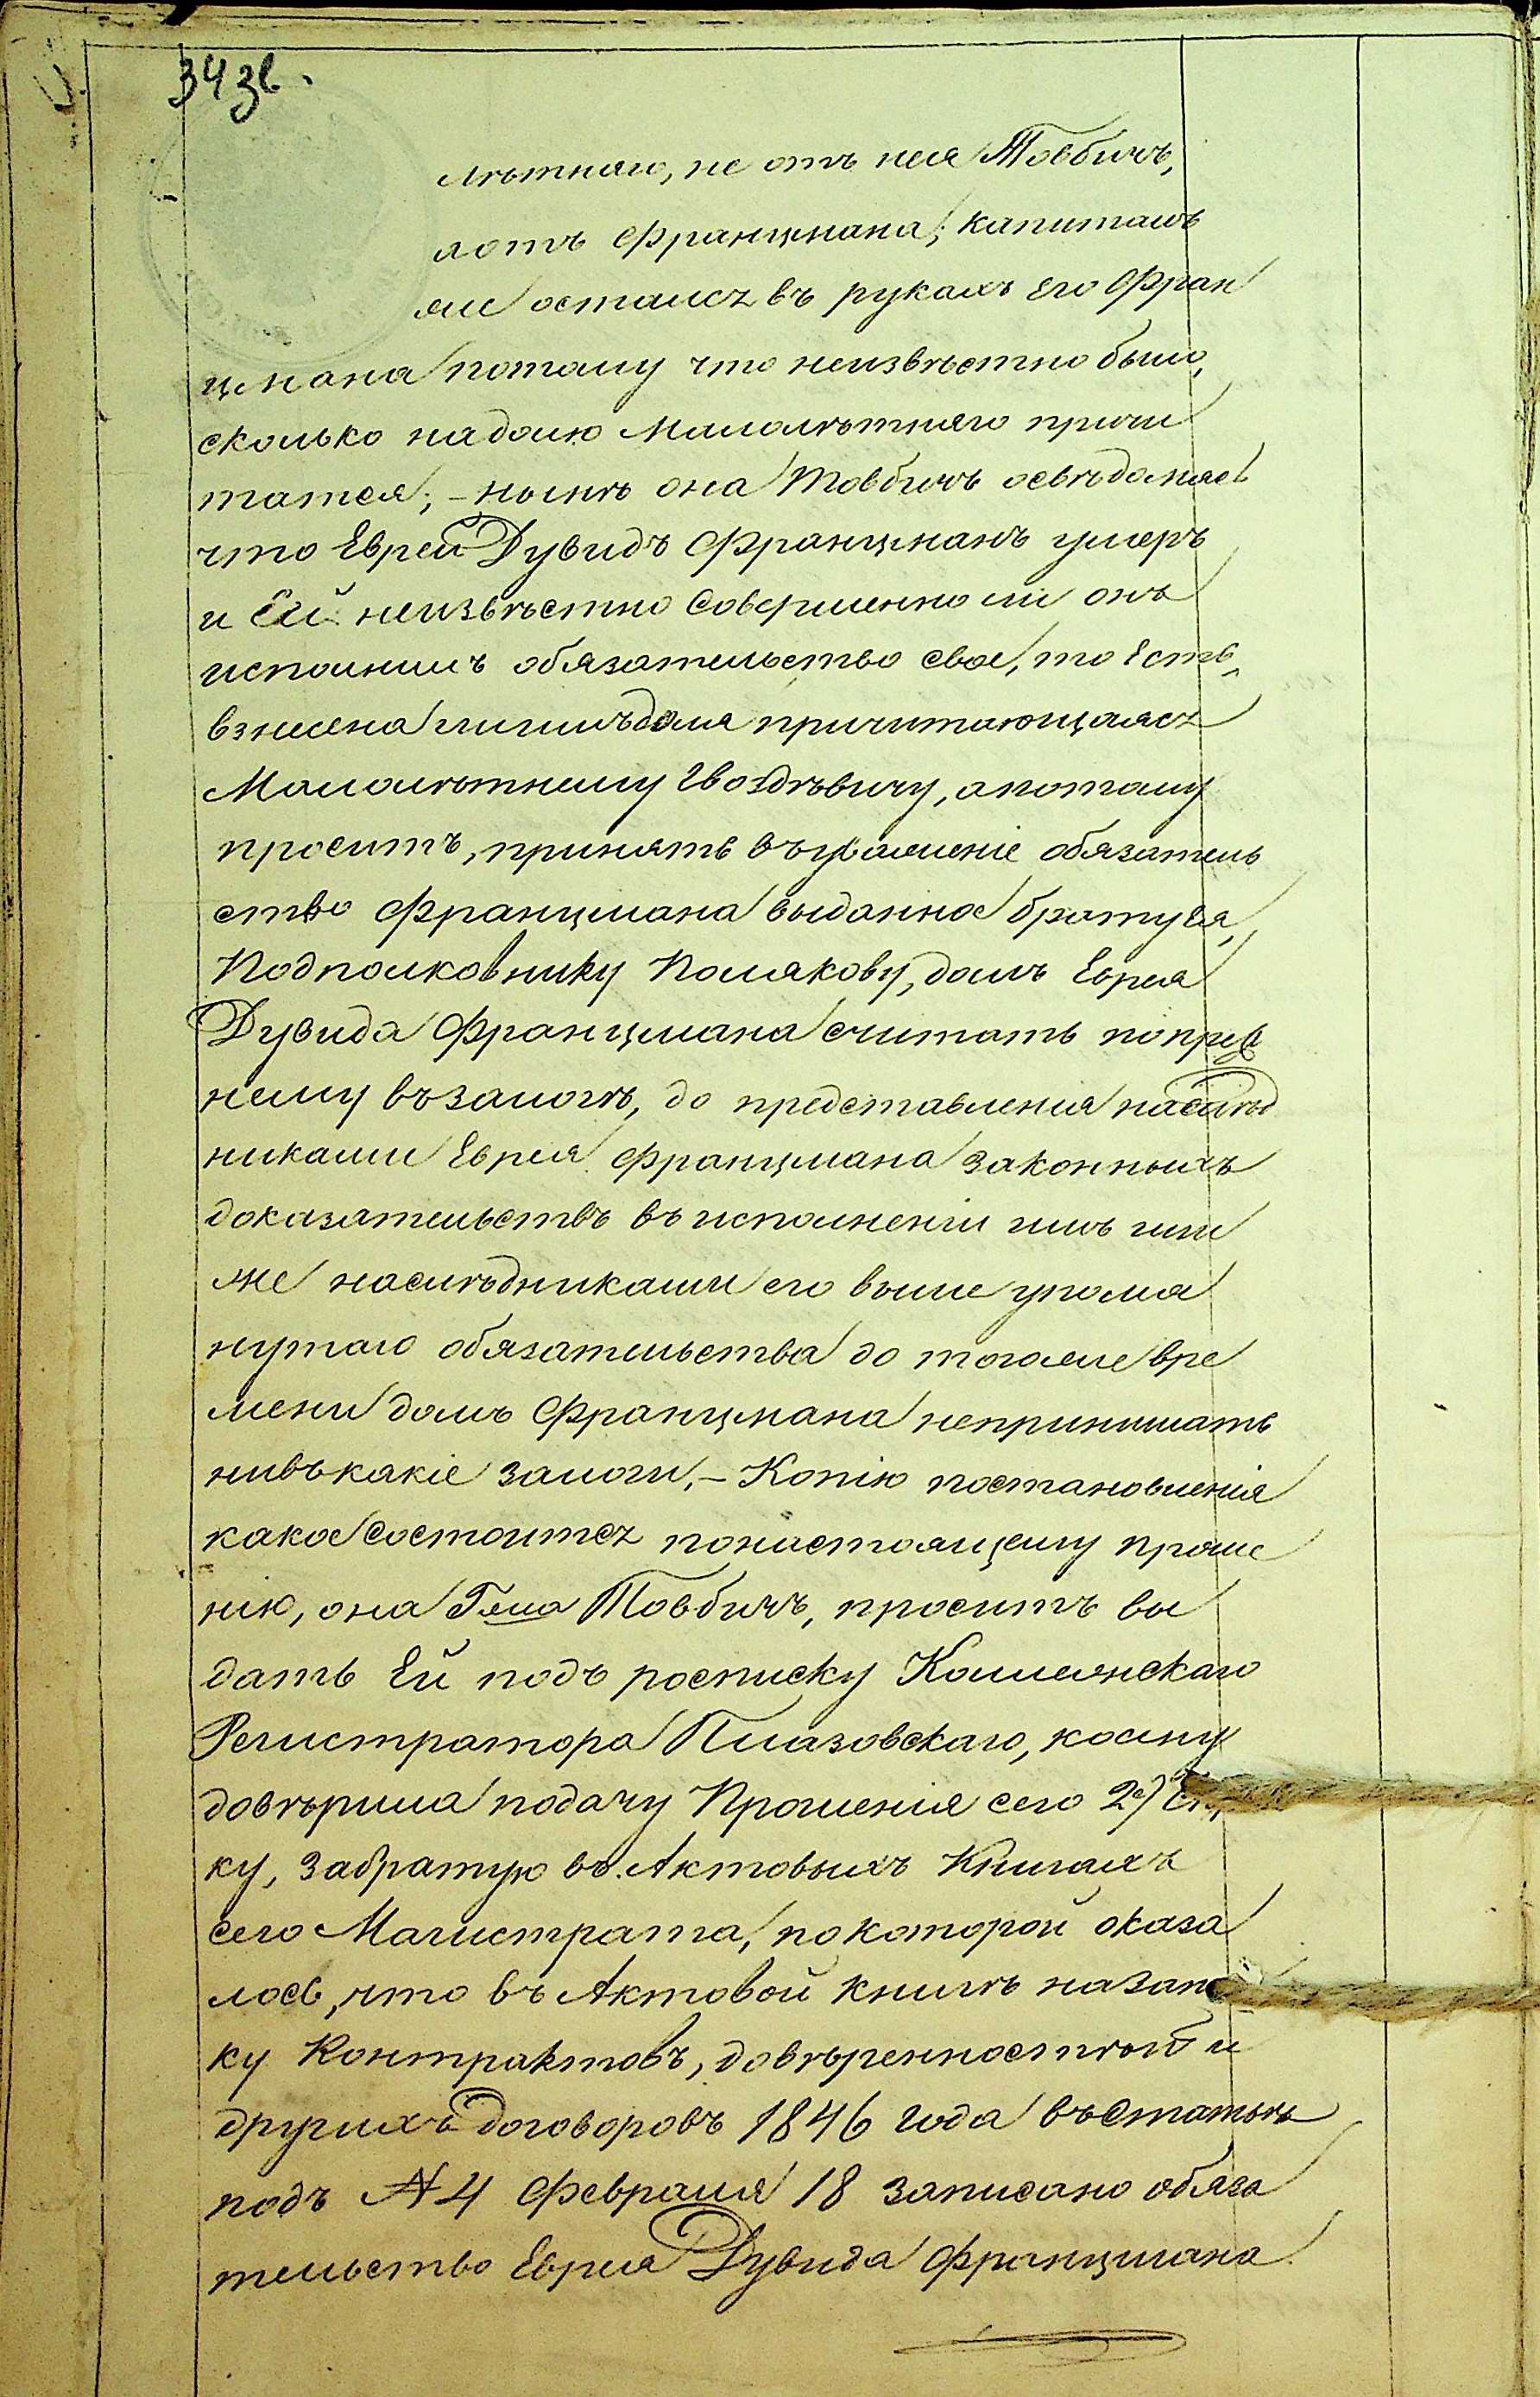 34 зв.
лѣтняго, не отъ нея Товбичъ,
а отъ Францмана; капиталъ
же остался въ рукахъ его Фран
цмана потому что неизвѣстно было,
сколько на долю Малолѣтняго причи
тается; – нынѣ она Товбичъ освѣдомясь
что Еврей Дувидъ Францманъ умеръ
и Ей неизвѣстно совершенно ли онъ
исполнилъ обязательство свое, то есть,
взнесена ли имъ доля причитающаяся
Малолѣтнему Гвоздѣвичу, а потому
проситъ, принять въ уваженіе обязатель
ство Францмана выданное брату ея,
Подполковнику Полякову, домъ Еврея
Дувида Францмана считать по преж
нему въ залогѣ, до представленія наслѣд
никами Еврея Францмана законныхъ
доказательствъ въ исполненіи имъ или
же наслѣдниками его выше упомя
нутаго обязательства до того же вре
мени домъ Францмана непринимать
нивъ какіе залоги, – Копію постановленія
какое состоится по настоящему проше
нію, она Г-жа Товбичъ, проситъ вы
дать Ей подъ росписку Коллежскаго
Регистратора Плазовскаго, коему
довѣрила подачу Прошенія сего 2е)
ку, забратую въ Актовыхъ Книгахъ
сего Магистрата, по которой оказа
лось, что въ Актовой книгѣ на запи
ку Контрактовъ, довѣренностѣй и
другихъ договоровъ 1846 года въ Статьѣ
подъ № 4 Февраля 18 записано обяза
тельство Еврея Дувида Францмана